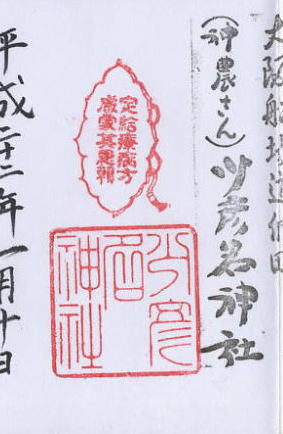 大阪船場道修町
(神農さん)少彦名神社
定給療病方
咸蒙其恩頼
少彦名神社
平成二十二年一月十日